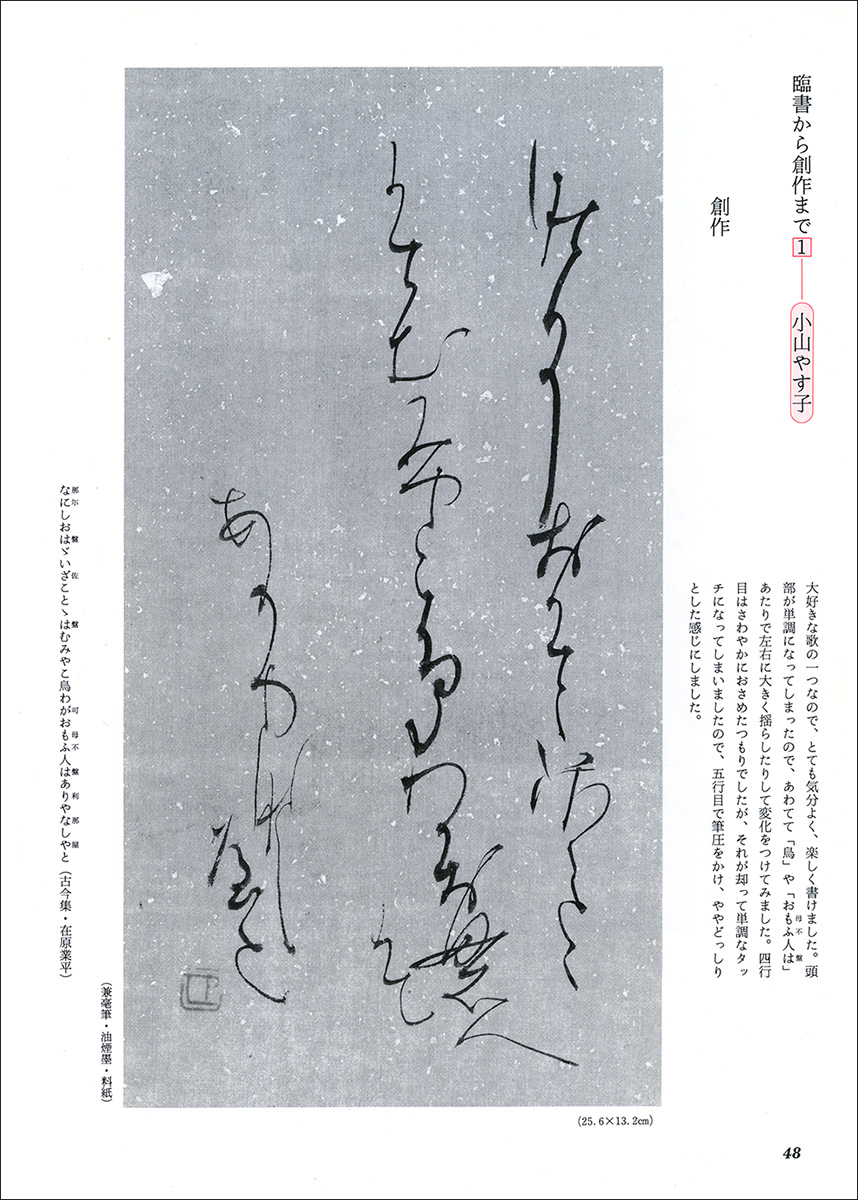 臨書から創作まで1――小山やす子
創作
大好きな歌の一つなので、とても気分よく、楽しく書けました。頭
部が単調になってしまったので、あわてて「鳥」や「おもふ人は」
母不 盤
あたりで左右に大きく揺らしたりして変化をつけてみました。四行
目はさわやかにおさめたつもりでしたが、それが却って単調なタッ
チになってしまいましたので、五行目で筆圧をかけ、ややどっしり
とした感じにしました。
(25.6×13.2cm)
(兼毫筆・油煙墨・料紙)
なにしおはゞいざことゝはむみやこ鳥わがおもふ人はありやなしやと(古今集・在原業平)
那尓 盤 佐 盤 可 母不 盤 利 那 屋
48